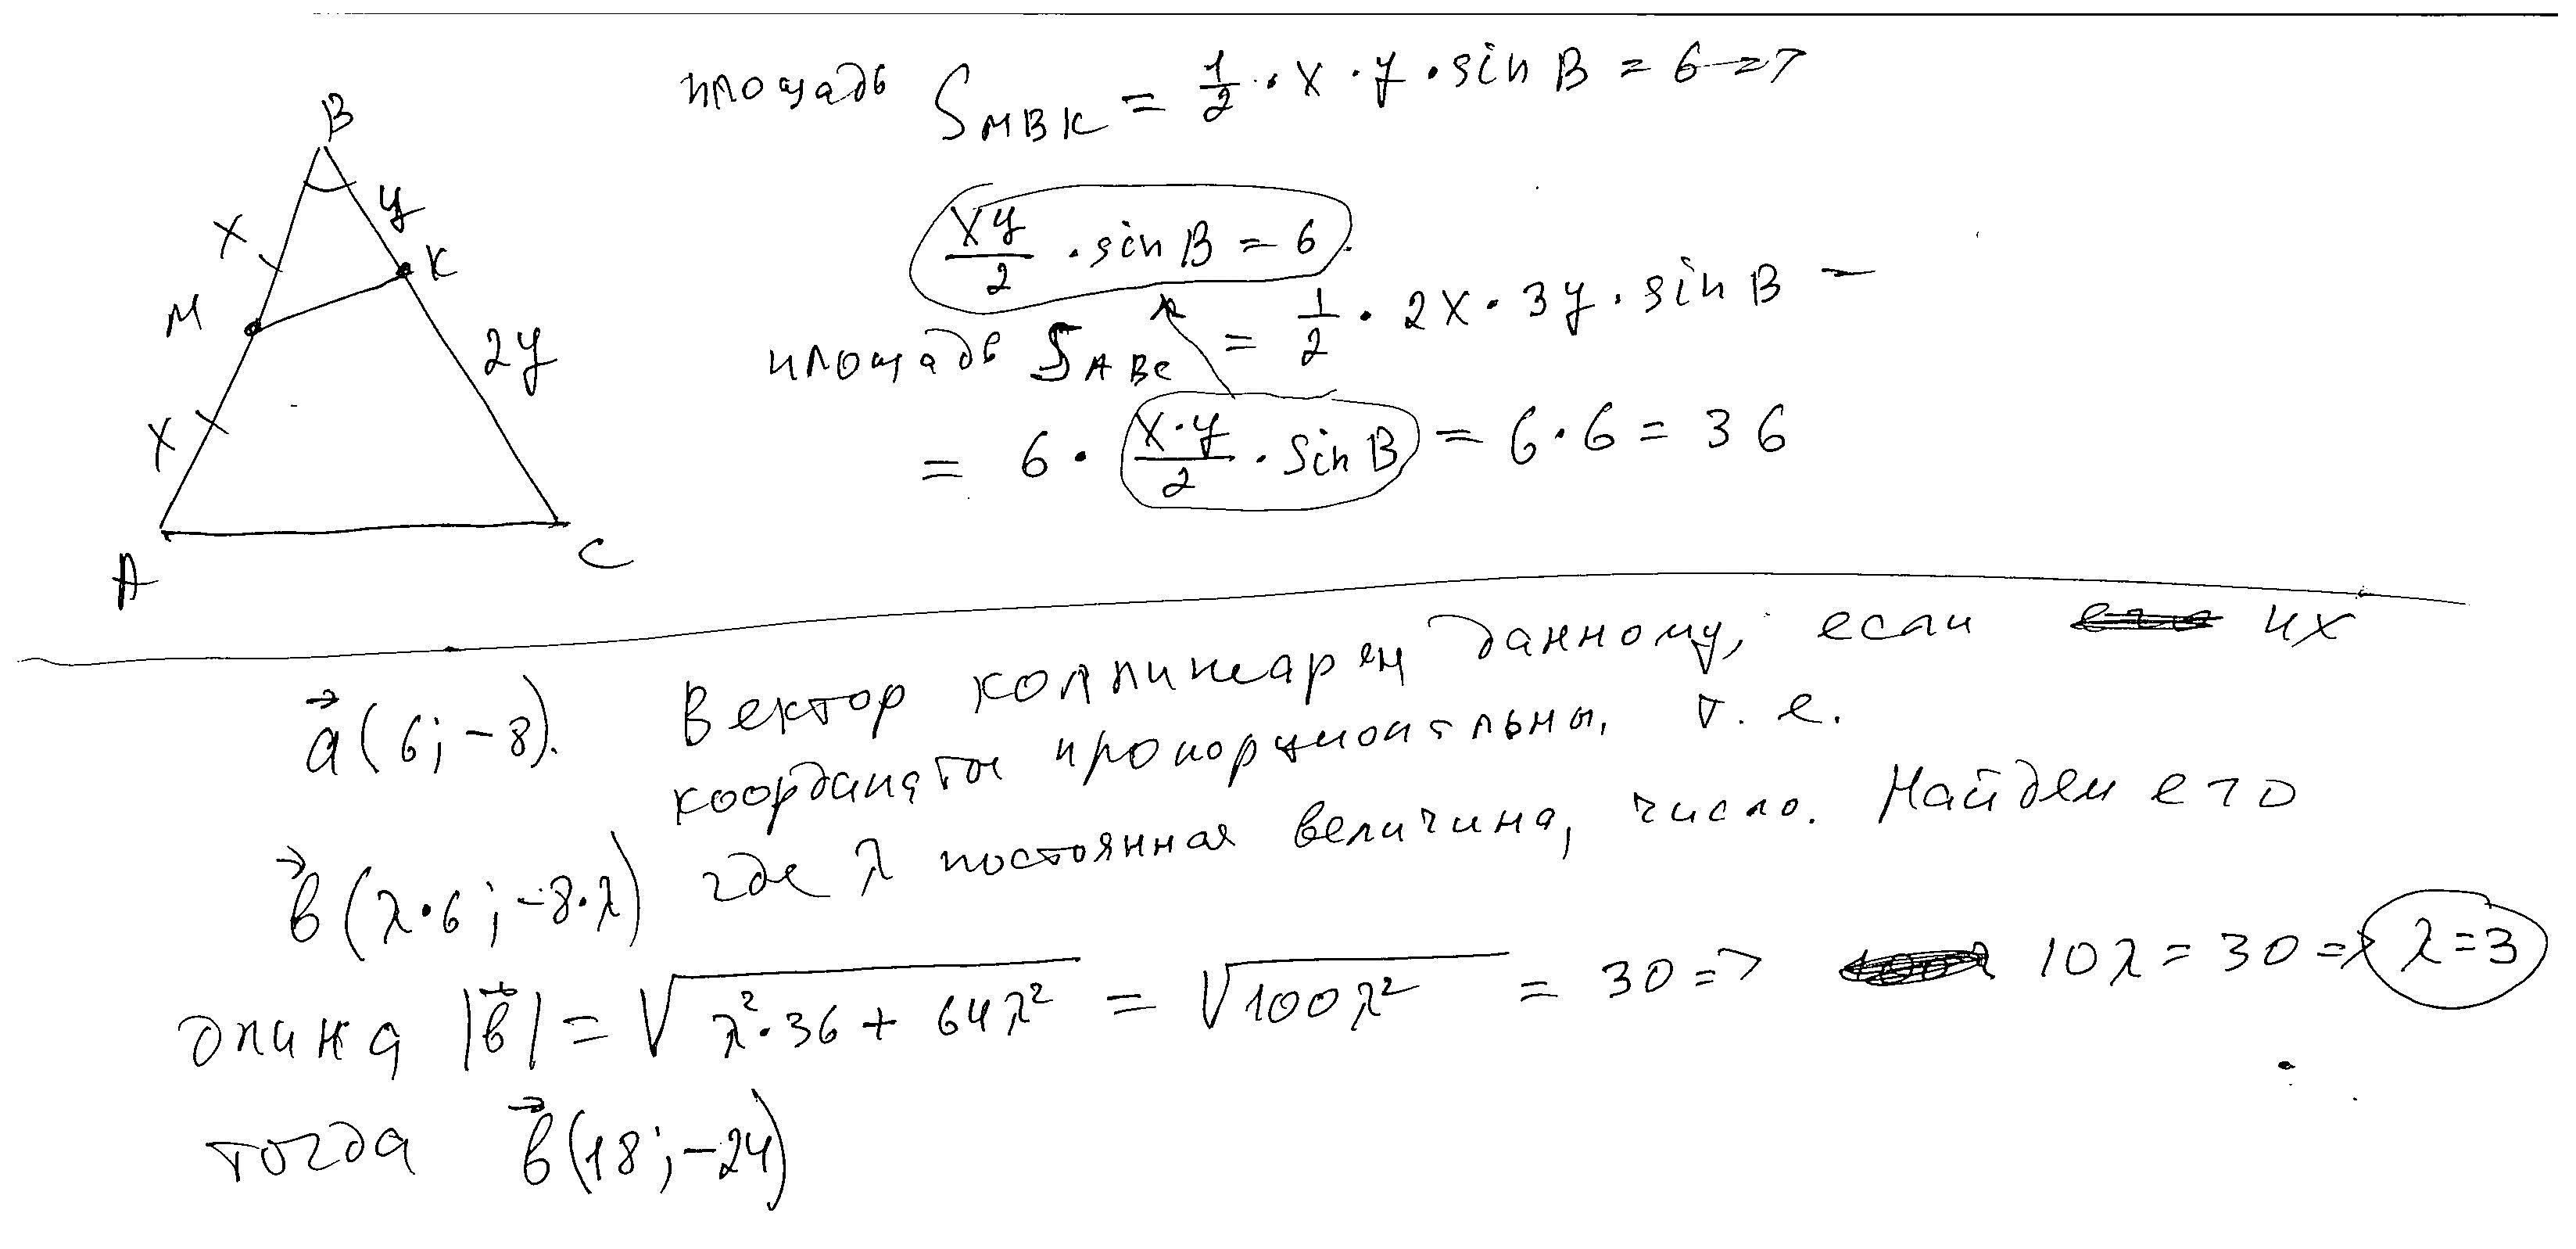 площадь S_MBK = 1/2 · x · y · sin B = 6 =>
B
y
x
xy/2 · sin B = 6.
K
M
площадь S_ABC = 1/2 · 2x · 3y · sin B =
2y
x
= 6 · x·y/2 · sin B = 6·6 = 36
A
C
a⃗(6; -8). Вектор коллинеарен данному, если их
координаты пропорциональны, т. е.
b⃗(λ·6; -8·λ) где λ постоянная величина, число. Найдем его
длина |b⃗| = √(λ²·36 + 64λ²) = √(100λ²) = 30 => 10λ = 30 => λ = 3
тогда b⃗(18; -24)